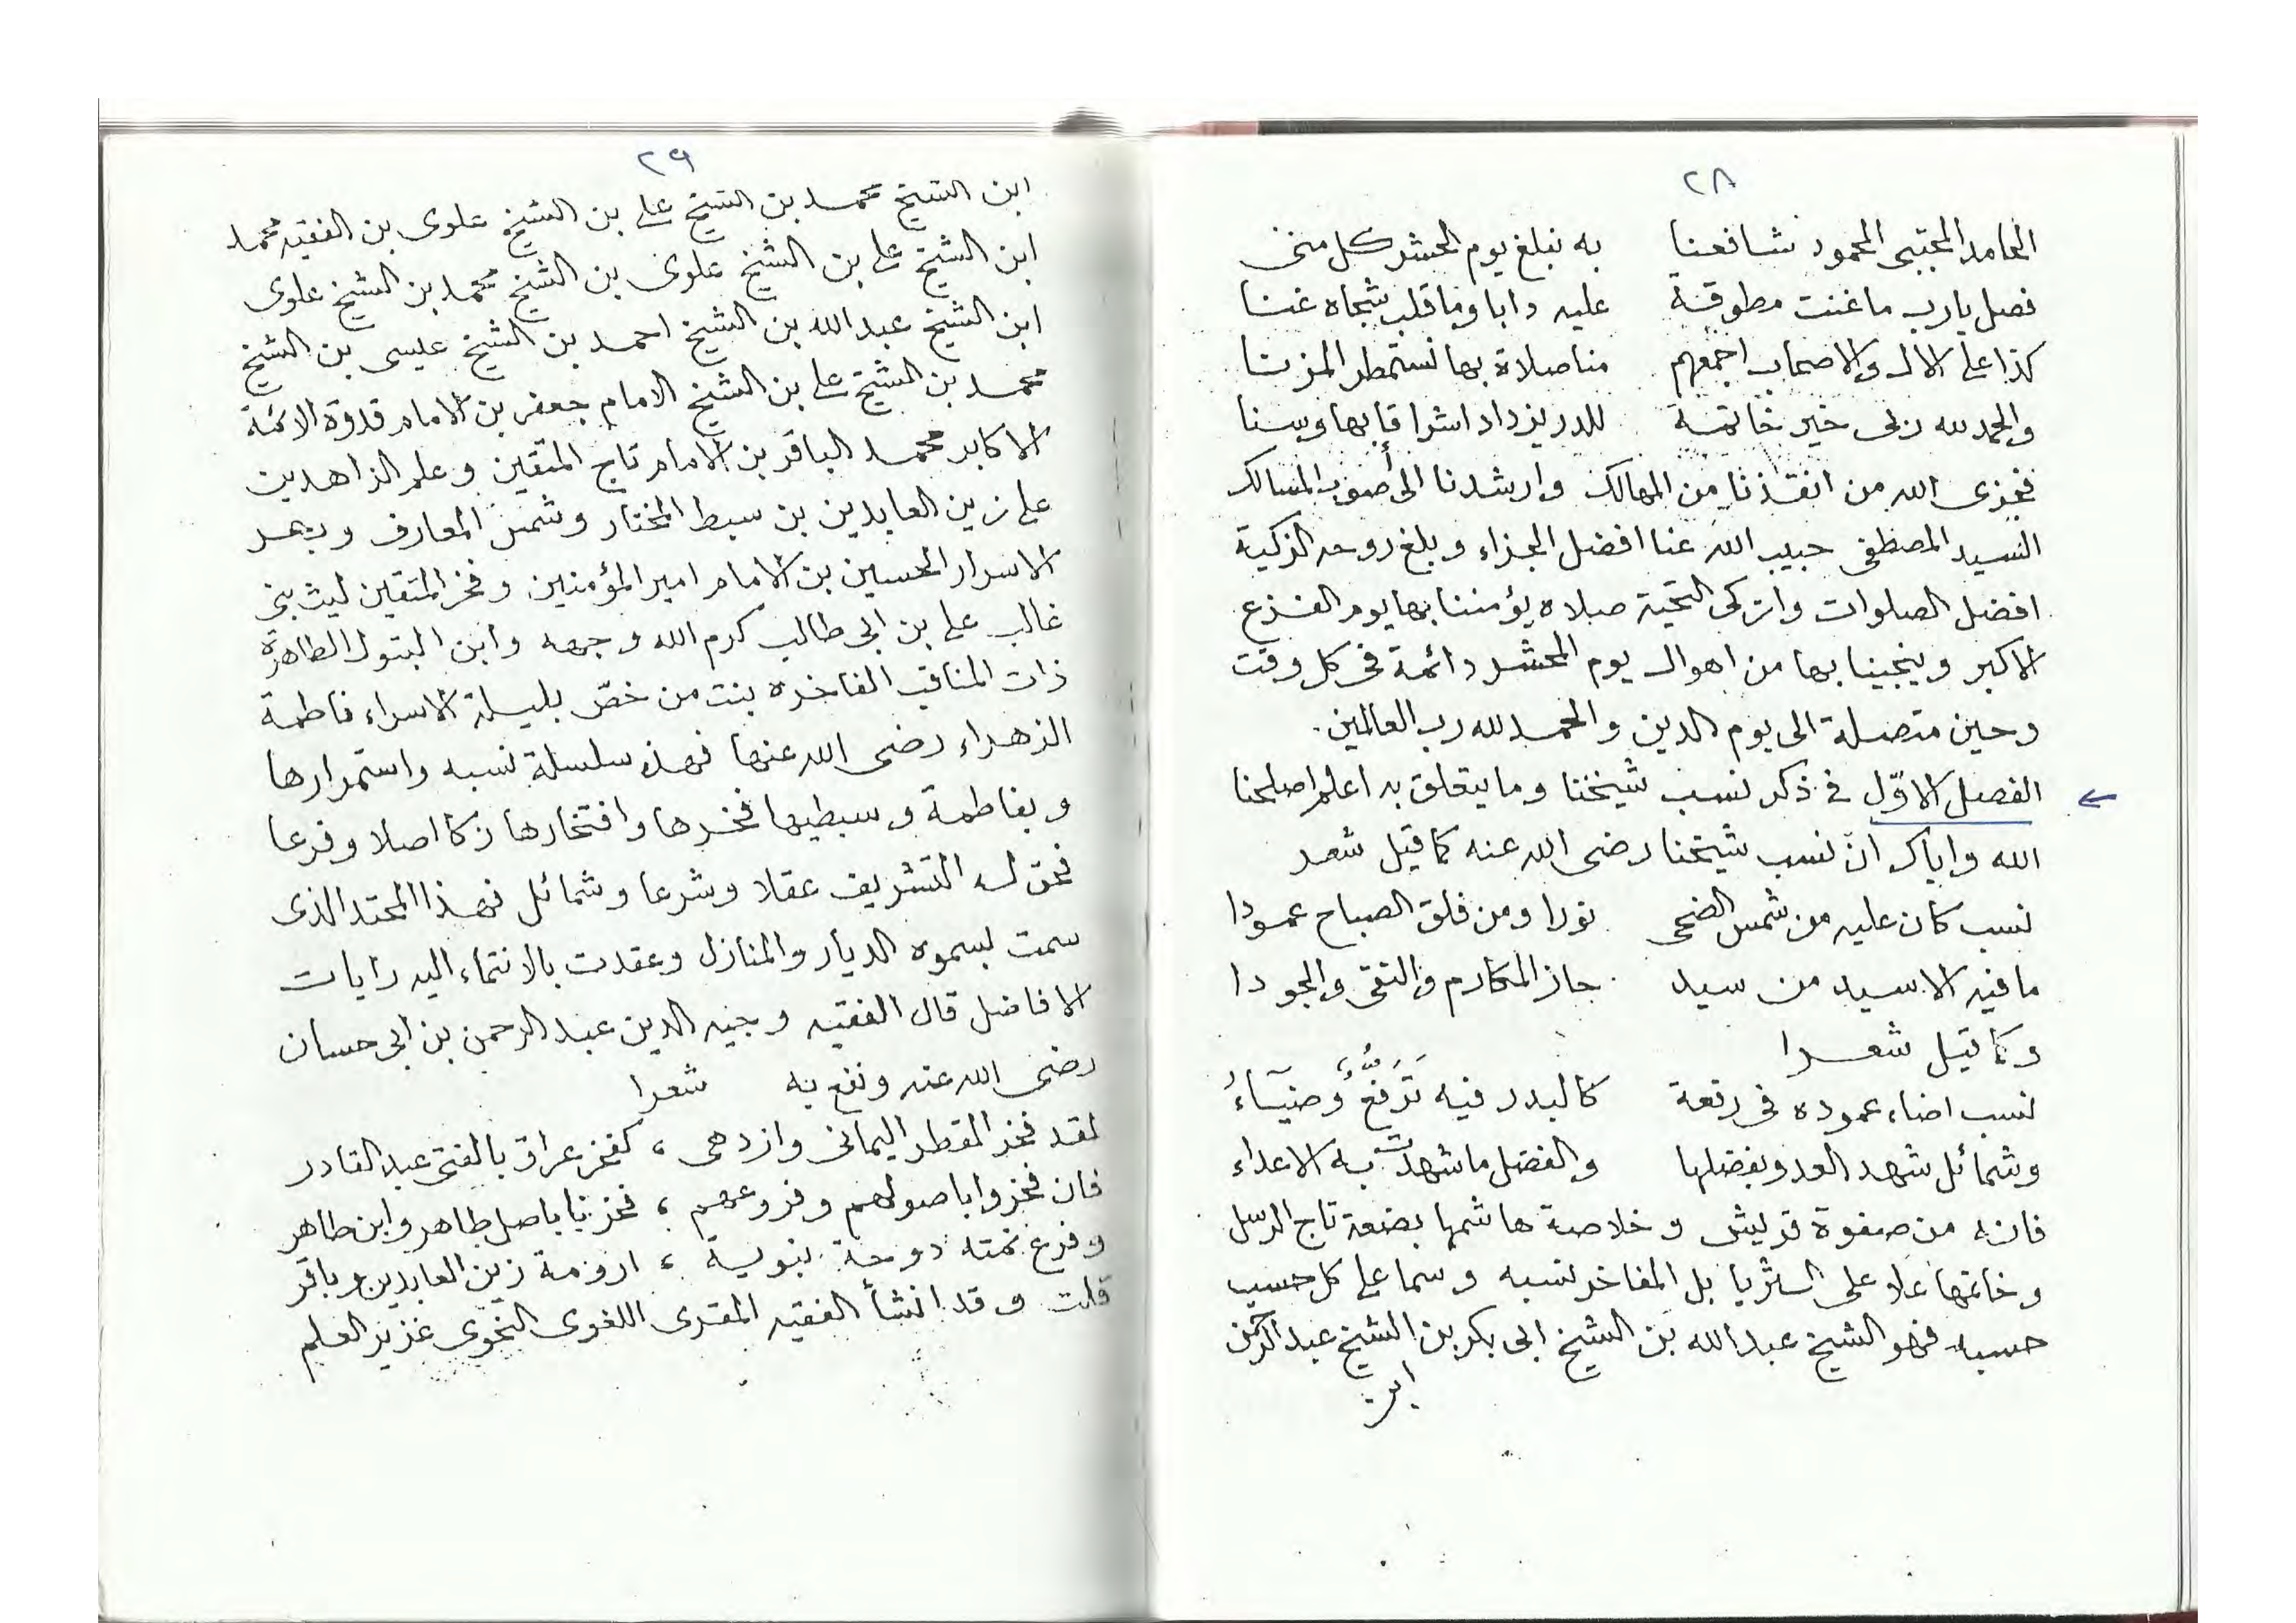 ٢٨
الحامد المجتبى المحمود شافعنا به نبلغ يوم الحشر كل منى
فصل يا رب ما غنت مطوقة عليه دابا وما قلب شجاه غنا
كذا على الال والاصحاب اجمعهم منا صلاة بها نستمطر المزنا
والحمد لله ربى خير خاتمة للدر يزداد اشراقا بها وسنا
فجزى الله من انقذنا من المهالك وارشدنا الى أصوب المسالك
السيد المصطفى حبيب الله عنا افضل الجزاء وبلغ روحه الزكية
افضل الصلوات وازكى التحية صلاه يؤمننا بها يوم الفزع
الاكبر وينجينا بها من اهوال يوم المحشر دائمة فى كل وقت
وحين متصلة الى يوم الدين والحمد لله رب العالمين.
← الفصل الاوّل فى ذكر نسب شيخنا وما يتعلق به اعلم اصلحنا
الله واياك انّ نسب شيخنا رضى الله عنه كما قيل شعر
نسب كان عليه من شمس الضحى نورا ومن فلق الصباح عمودا
ما فيه الا سيد من سيد حاز المكارم والتقى والجودا
وكما قيل شعرا
نسب اضاء عموده فى رفعة كالبدر فيه تَرَفُّعٌ وضيَآءُ
وشمائل شهد العدو بفضلها والفضل ما شهدت به الاعداء
فانه من صفوة قريش وخلاصة هاشمها بضعة تاج الرسل
وخاتمها علا على الثريا بل المفاخر نسبه وسما على كل حسيب
حسبه فهو الشيخ عبدالله بن الشيخ ابى بكر بن الشيخ عبدالرحمن
ابن
٢٩
ابن الشيخ محمد بن الشيخ على بن الشيخ علوى بن الفقيه محمد
ابن الشيخ على بن الشيخ علوى بن الشيخ محمد بن الشيخ علوى
ابن الشيخ عبدالله بن الشيخ احمد بن الشيخ عيسى بن الشيخ
محمد بن الشيخ على بن الشيخ الامام جعفر بن الامام قدوة الائمة
الاكابر محمد الباقر بن الامام تاج المتقين وعلم الزاهدين
على زين العابدين بن سبط المختار وشمس المعارف وبحر
الاسرار الحسين بن الامام امير المؤمنين وفخر المتقين ليث بنى
غالب على بن ابى طالب كرم الله وجهه وابن البتول الطاهرة
ذات المناقب الفاخره بنت من خصّ بليلة الاسراء فاطمة
الزهراء رضى الله عنها فهذه سلسلة نسبه واستمرارها
وبفاطمة وسبطيها فخرها وافتخارها زكا اصلا وفرعا
فحق له التشريف عقلا وشرعا وشمائل فهذا المحتد الذى
سمت بسموه الديار والمنازل وعقدت بالانتماء اليه رايات
الافاضل قال الفقيه وجيه الدين عبد الرحمن بن ابى حسان
رضى الله عنه ونفع به شعرا
لقد فخر القطر اليمانى وازدهى ، كفخر عراق بالفتى عبد القادر
فان فخروا باصولهم وفروعهم ، فخرنا باصل طاهر وابن طاهر
وفرع نمته دوحة نبوية ، ارومة زين العابدين وباقر
قلت وقد انشأ الفقيه المقرى اللغوى النحوى غزير العلم